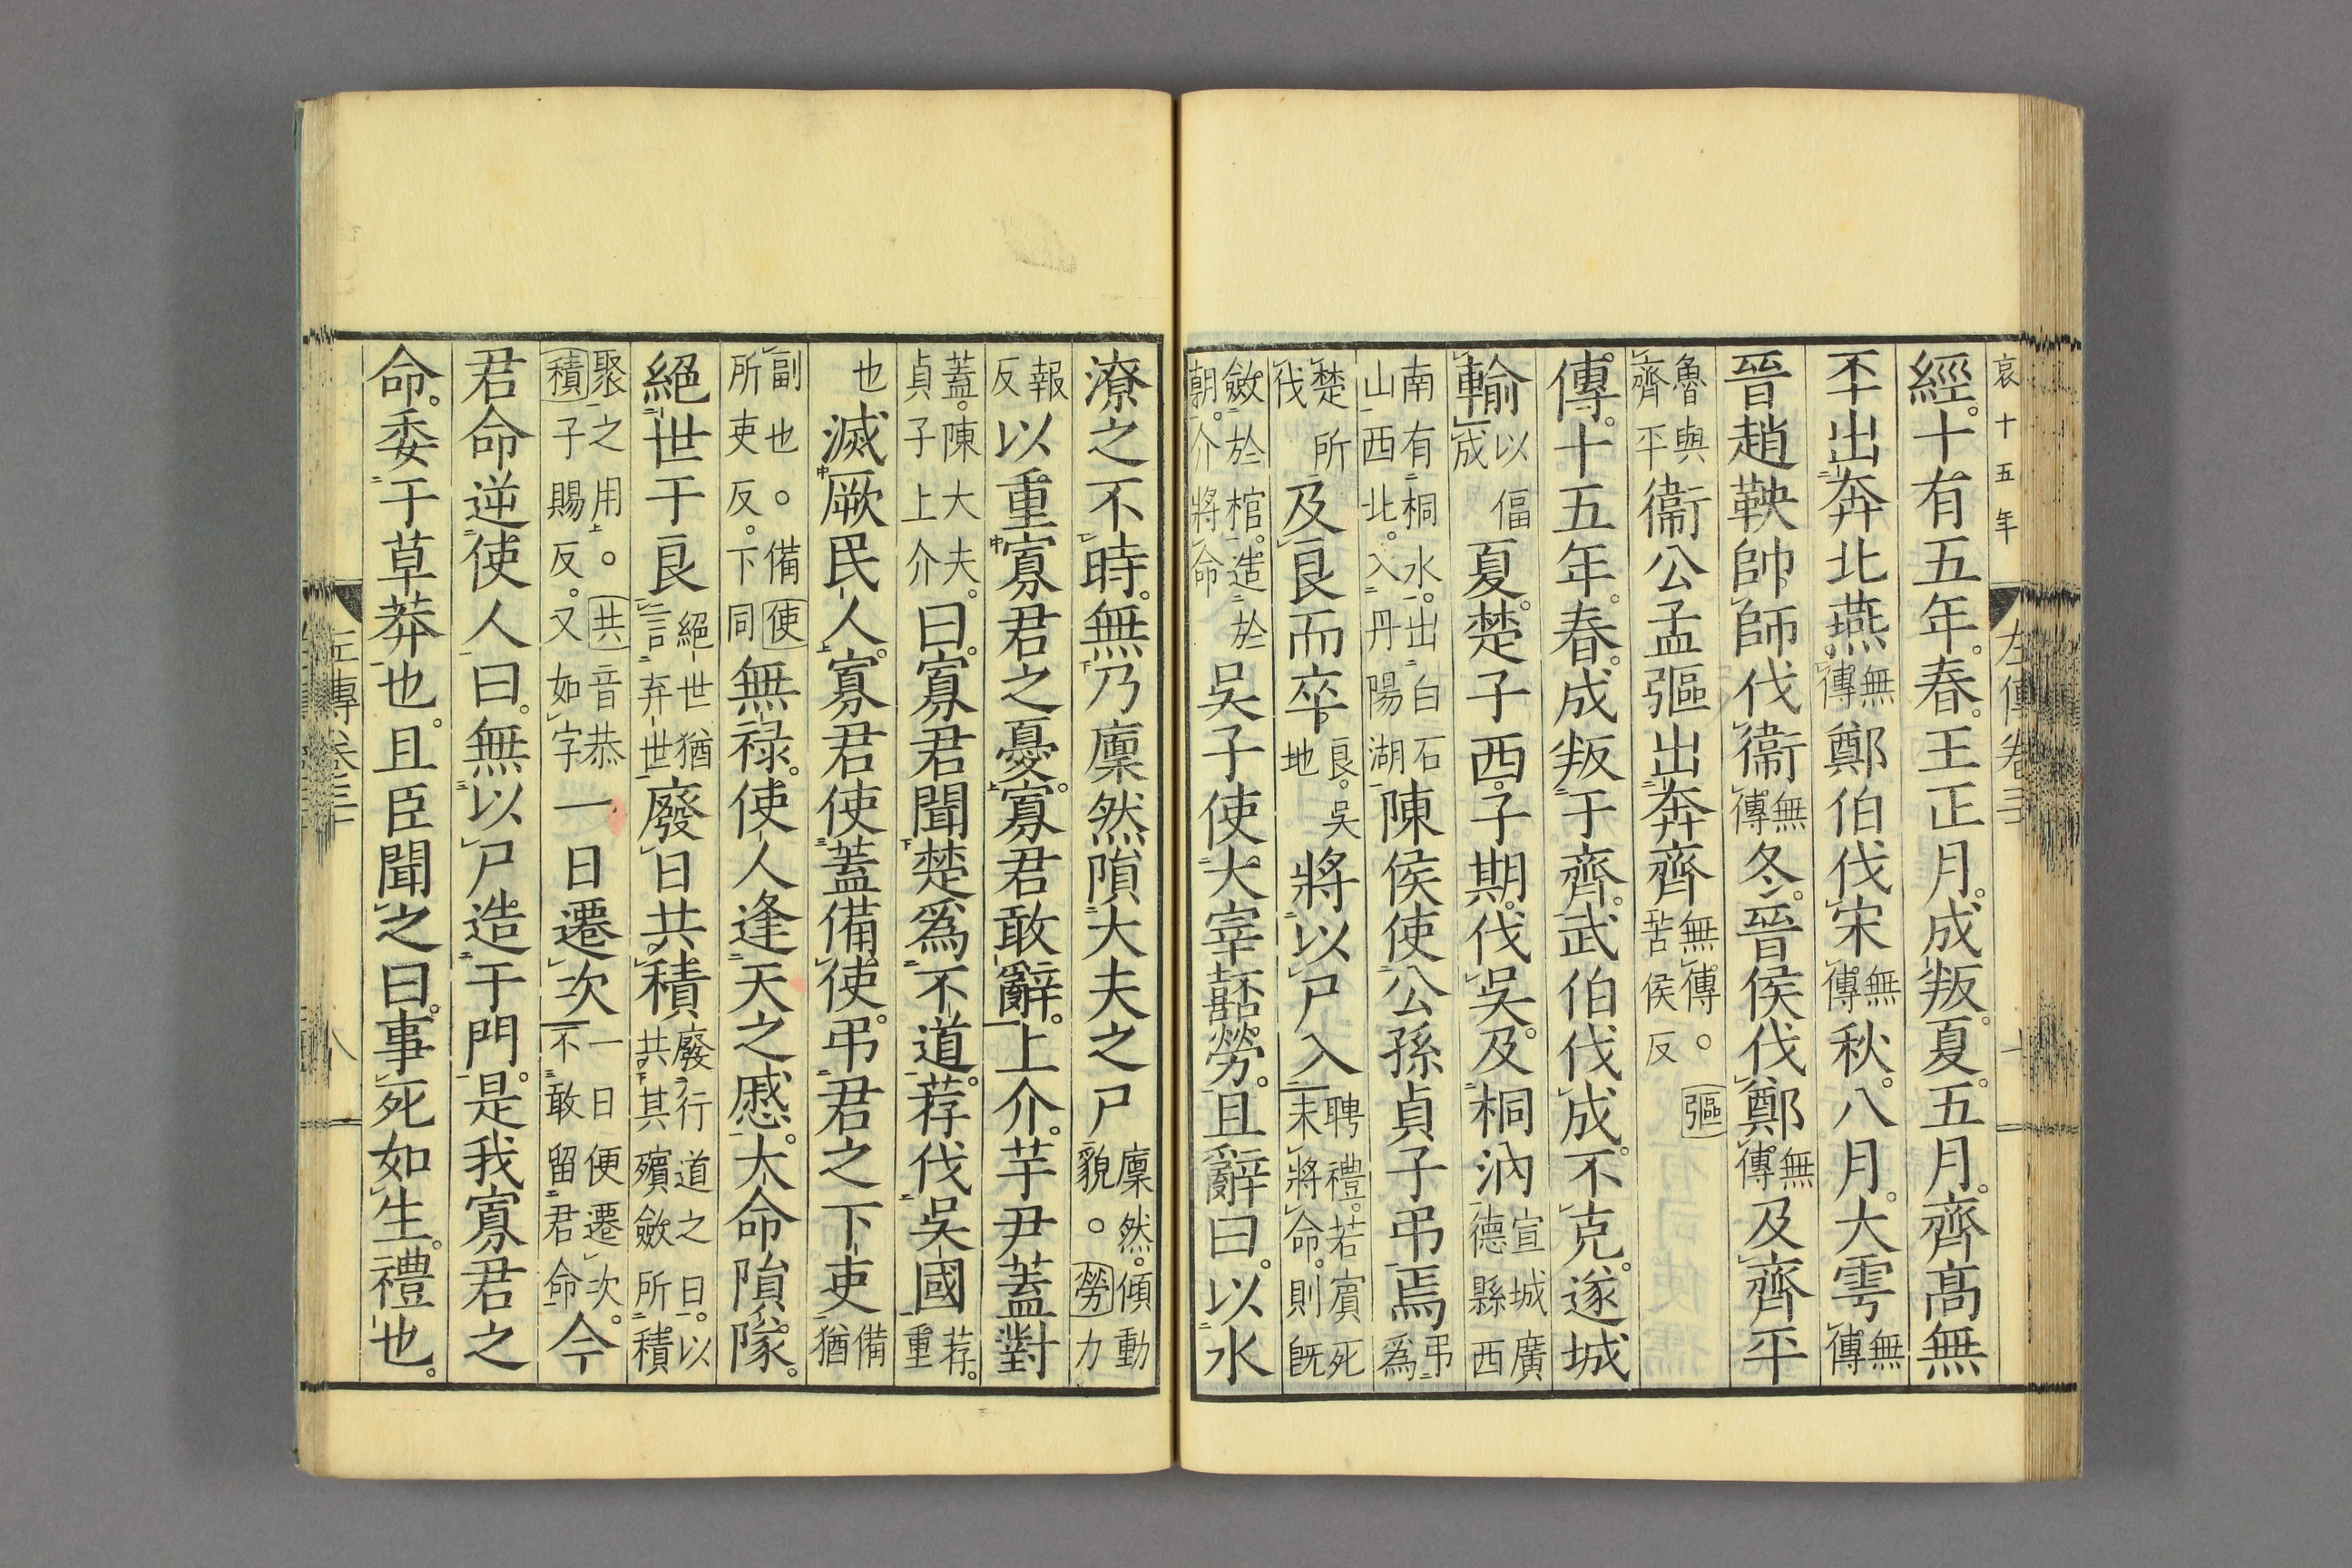 哀十五年
左傳卷三十
經。十有五年。春。王正月。成叛。夏。五月。齊高無
㔻出奔北燕。無傳鄭伯伐宋。無傳秋。八月。大雩。無傳
晉趙鞅帥師伐衞。無傳冬。晉侯伐鄭。無傳及齊平
魯與齊平衞公孟彄出奔齊無傳。○彄苦侯反
傳。十五年。春。成叛于齊。武伯伐成。不克。遂城
輸以偪成夏。楚子西。子期。伐吳。及桐汭宣城廣德縣西
南有桐水。出白石山西北。入丹陽湖陳侯使公孫貞子弔焉弔爲
楚所伐及良而卒良。吳地將以尸入聘禮。若賓死未將命。則既
斂於棺。造於朝。介將命吳子使大宰嚭勞。且辭曰。以水
潦之不時。無乃廩然隕大夫之尸廩然。傾動貌。○勞力
報反以重寡君之憂。寡君敢辭。上介。芋尹蓋對
蓋。陳大夫。貞子上介曰。寡君聞楚爲不道。荐伐吳國荐。重
也滅厥民人。寡君使蓋備使。弔君之下吏備猶
副也。○備使所吏反。下同無祿。使人逢天之慼。大命隕隊。
絕世于良絕世猶言弃世廢日共積廢行道之日。以共其殯斂所積
聚之用。○共音恭積子賜反。又如字一日遷次一日便遷次。不敢留君命今
君命逆使人曰。無以尸造于門。是我寡君之
命。委于草莽也。且臣聞之曰。事死如生。禮也。